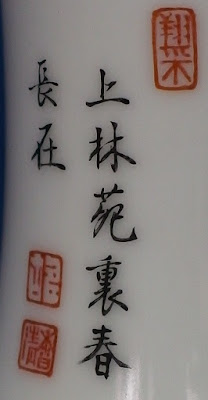 上林苑裏春
長在